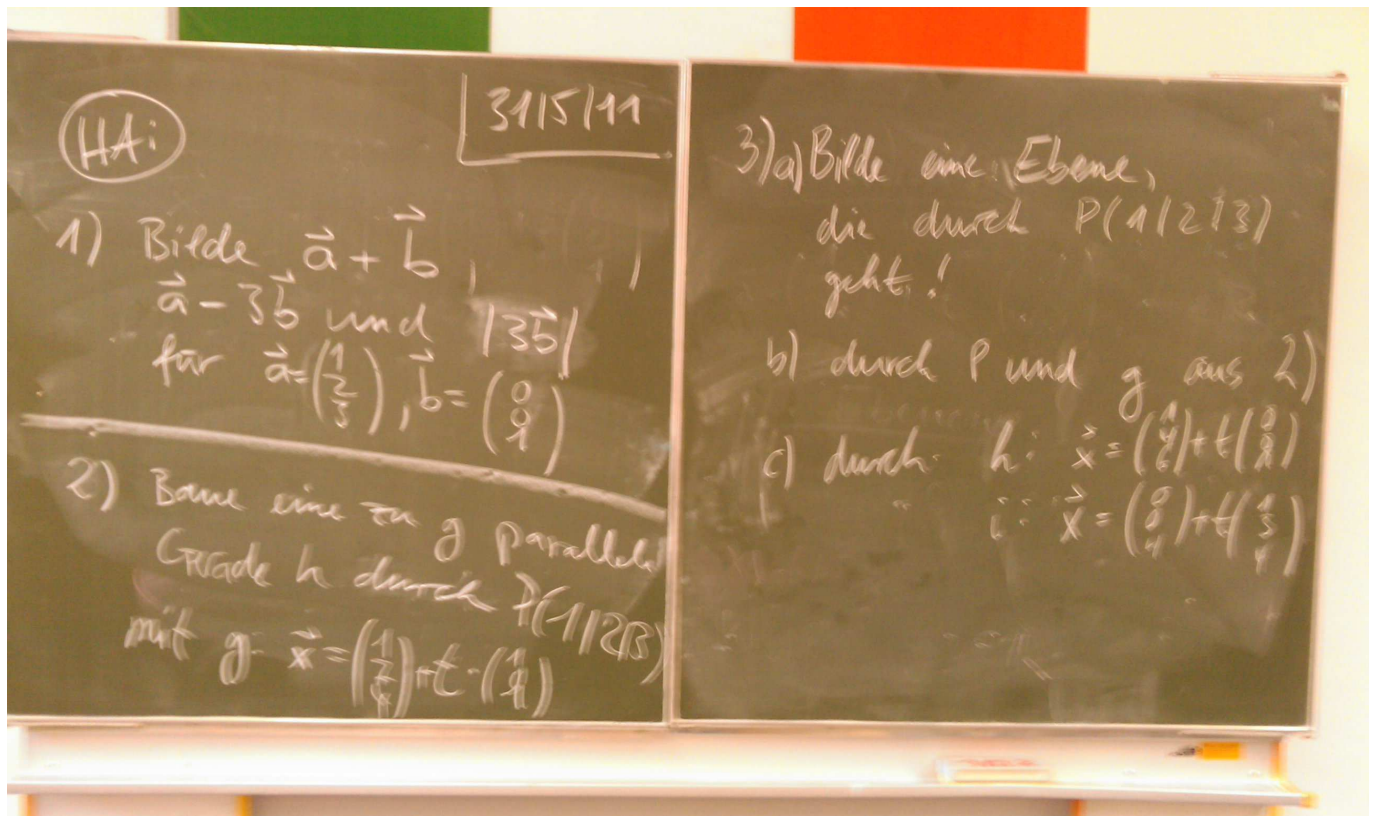 HAi
31/5/11
1) Bilde a⃗ + b⃗ ,
a⃗ - 3b⃗ und |3b⃗|
für a⃗ = (1 2 3), b⃗ = (0 0 1)
2) Baue eine zu g parallele
Gerade h durch P(1/2/3)
mit g: x⃗ = (1 2 4) + t · (1 1)
3) a) Bilde eine Ebene,
die durch P(1/2/3)
geht!
b) durch P und g aus 2)
c) durch h: x⃗ = + t
" i: x⃗ = (0 0 1) + t (1 3 1)